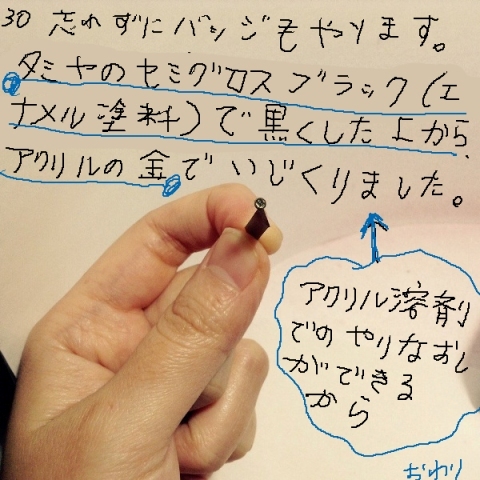 30 忘れずにバッジもやります。
タミヤのセミグロスブラック(エ
ナメル塗料)で黒くした上から
アクリルの金でいじくりました。
アクリル溶剤
でのやりなおし
ができる
から
おわり